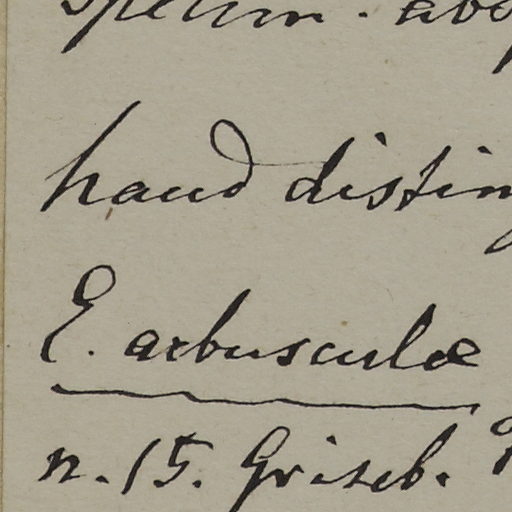 specim.
haud distin
E. arbusculæ
n. 15. Griseb.